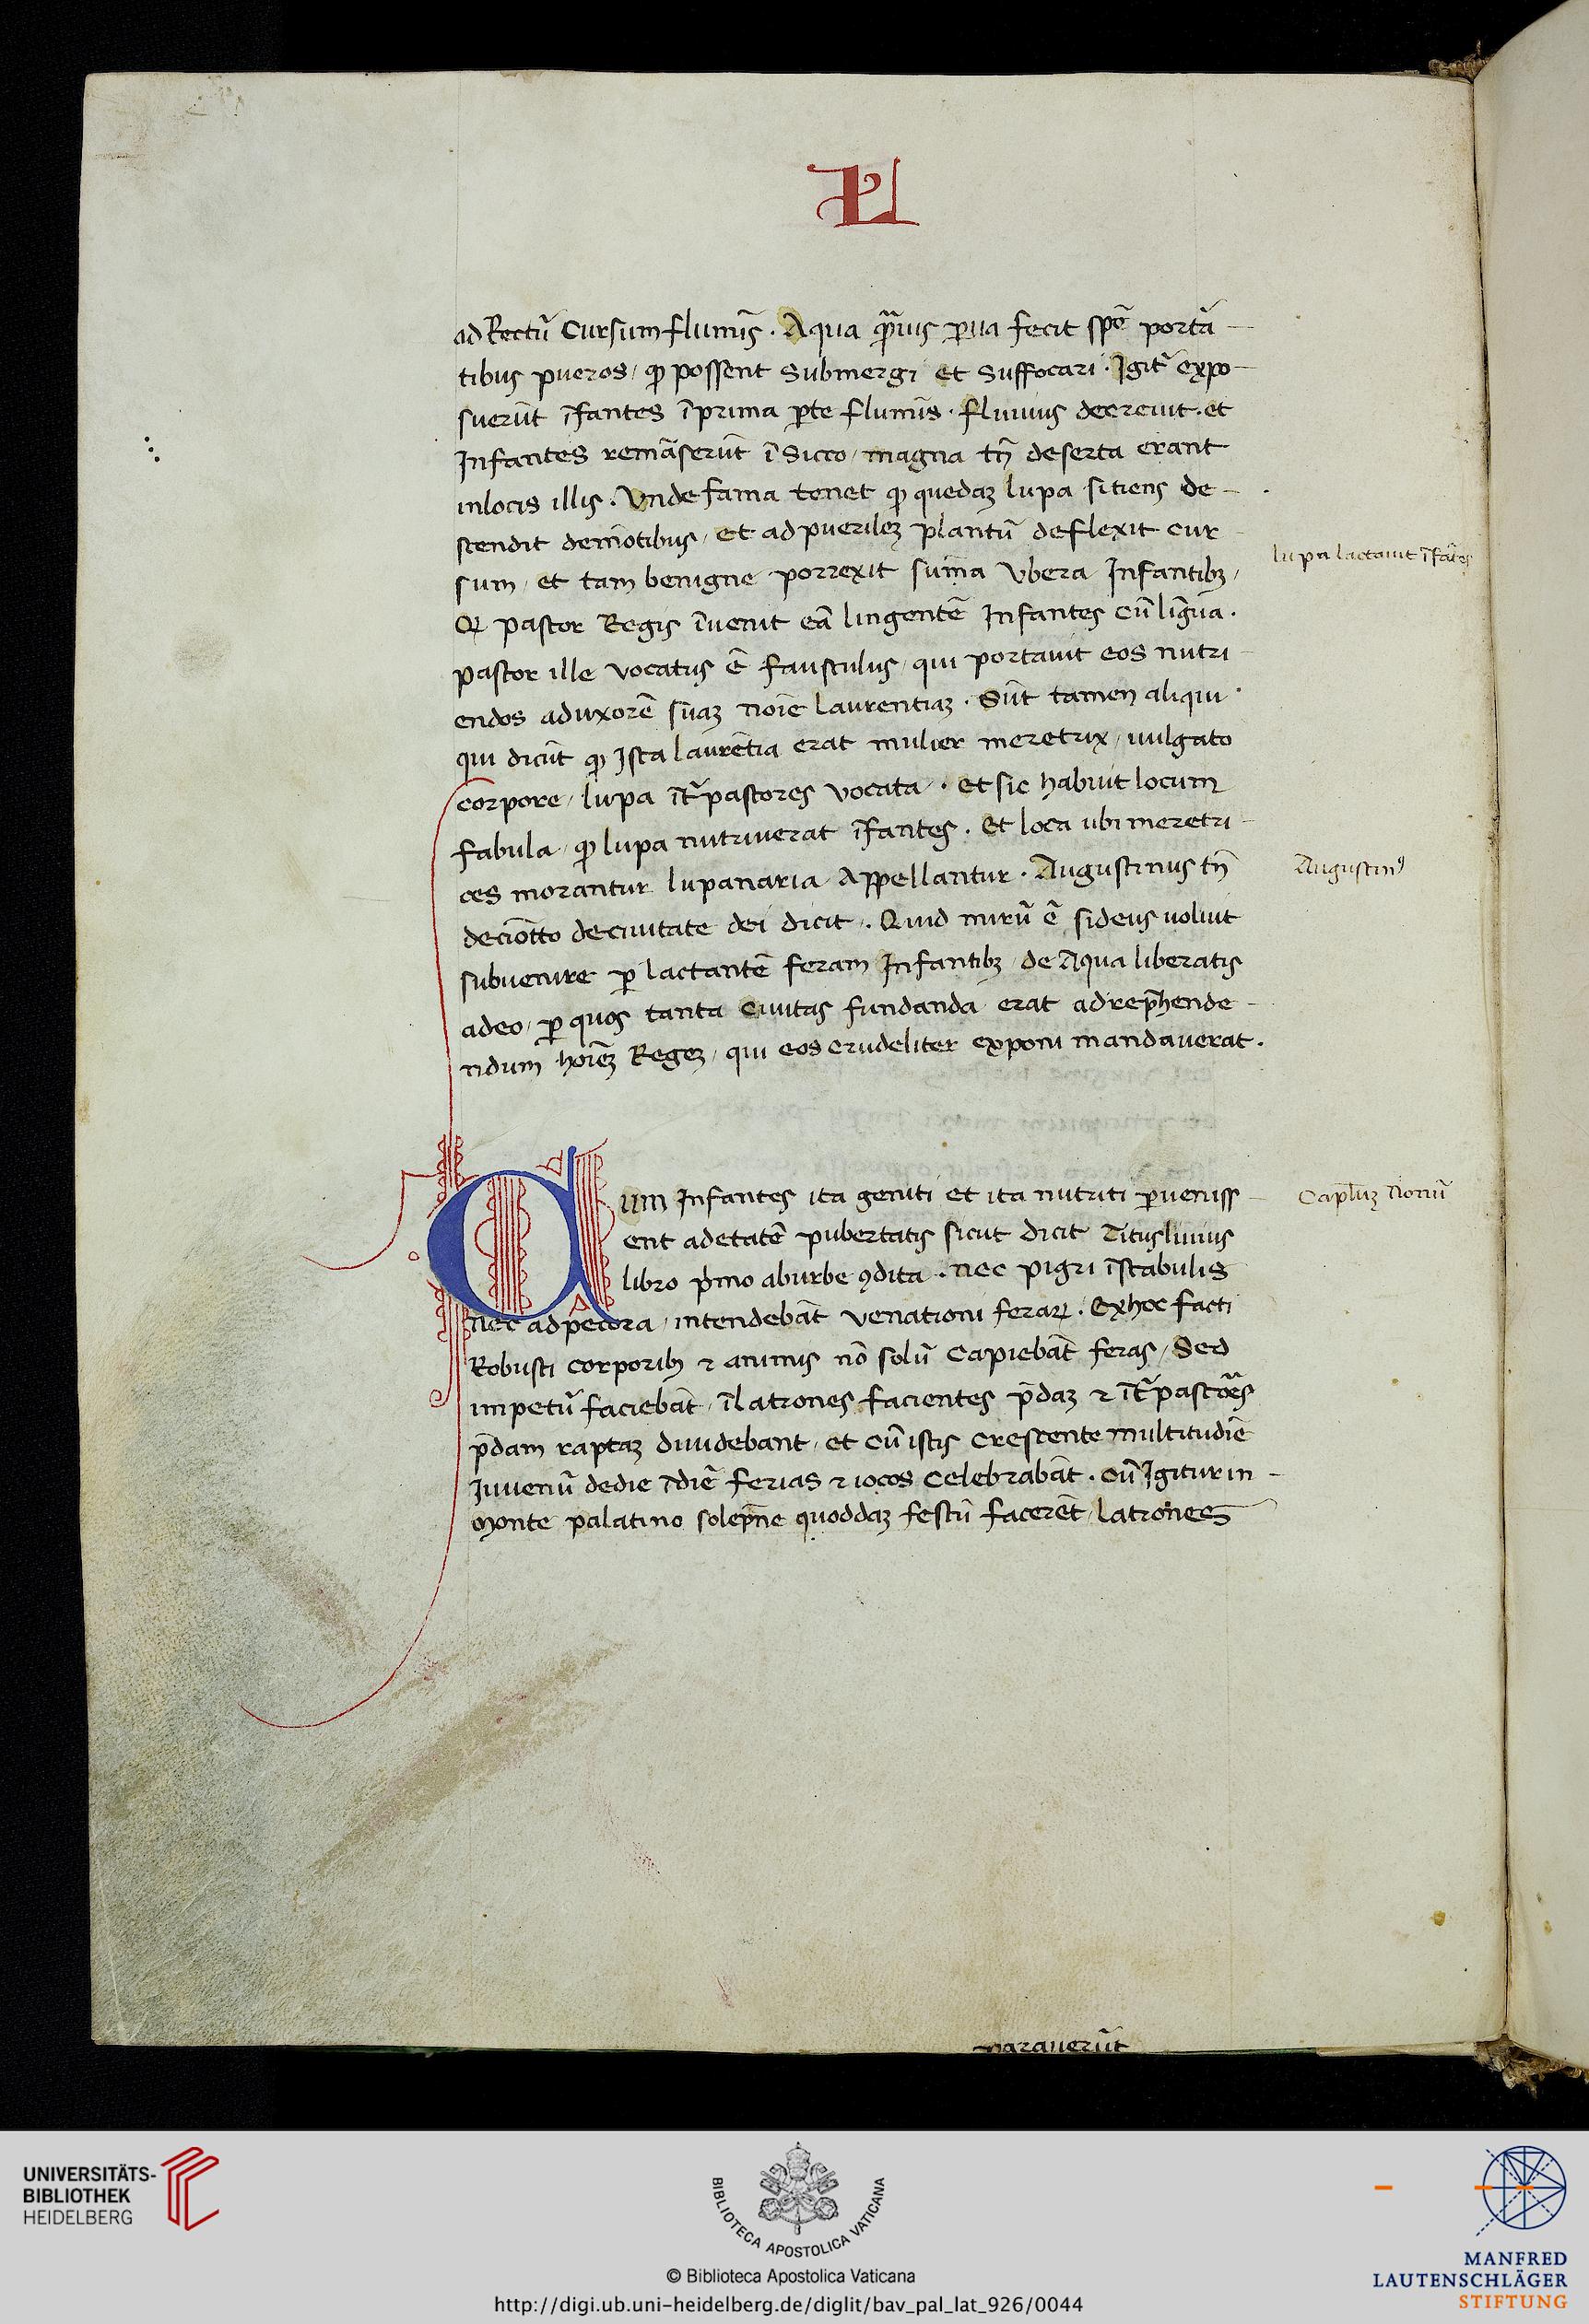 L
ad Rectū Cursum flumīs. Aqua q̄uis ꝑua fecit spē portā-
tibus pueros / ꝙ possent submergi et suffocari. Igit̄ expo-
suerūt īfantes ī prima ꝑte flumīs. fluuius decreuit. et
Infantes remāserūt ī sicco / magna tn̄ deserta erant
in locis illis. Vnde fama tenet ꝙ quedaꝫ lupa sitiens de-
scendit de mōtibus / et ad puerileꝫ plantū deflexit cur
sum / et tam benigne porrexit sum̄a vbera Infantibꝫ /
Qꝫ pastor Regis īuenit eā lingentē Infantes cū lingua.
pastor ille vocatus ē fausculus / qui portauit eos nutri
endos ad uxorē suaꝫ noīe laurentiaꝫ. Sūt tamen aliqui
qui dicūt ꝙ Ista laurētia erat mulier meretrix / uulgato
corpore / lupa īt̄ pastores vocata. et sic habuit locum
fabula / ꝙ lupa nutriuerat īfantes. Et loca ubi meretri-
ces morantur lupanaria Appellantur. Augustinus tn̄
deciōtto de ciuitate dei dicit. Quid mirū ē si deus uoluit
subuenire ꝑ lactantē feram Infantibꝫ de Aqua liberatis
a deo / ꝑ quos tanta ciuitas fundanda erat ad rep̄hende-
ndum hoīeꝫ Regeꝫ / qui eos crudeliter exponi mandauerat.
lupa lactauit īfātes
Augustinꝰ
Cum Infantes ita geniti et ita nutriti ꝑueniss-
ent ad etatē pubertatis sicut dicit Titus liuius
libro p̄mo ab urbe ꝯdita. nec pigri ī stabulis
nec ad pecora / intendebāt venationi feraꝝ. Ex hoc facti
Robusti corporibꝫ ⁊ animis nō solū Capiebāt feras / Sed
impetū faciebāt / ī latrones facientes p̄daꝫ ⁊ īt̄ pastores
p̄dam raptaꝫ diuidebant / et cū istis crescente multitudīe
Iuuenū de die ī diē ferias ⁊ iocos celebrabāt. cū Igitur in-
monte palatino solepne quoddaꝫ festū facerēt / latrones
Capl̄uꝫ nonū
parauerūt
UNIVERSITÄTS-
BIBLIOTHEK
HEIDELBERG
BIBLIOTECA APOSTOLICA VATICANA
© Biblioteca Apostolica Vaticana
http://digi.ub.uni-heidelberg.de/diglit/bav_pal_lat_926/0044
MANFRED
LAUTENSCHLÄGER
STIFTUNG